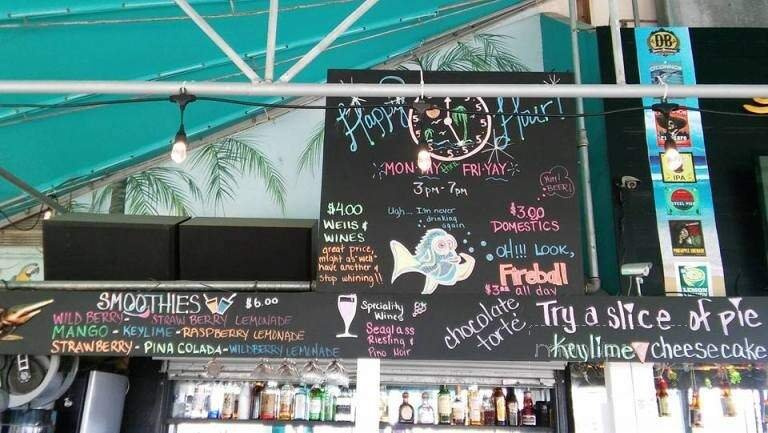 Happy Hour!
MON-DAY thru FRI-YAY
3pm-7pm
YUM!
BEER!
$4.00
WEllS &
WINES
great price,
might as well
have another &
stop whining!!
Ugh... I'm never
drinking
again
$3.00
DOMESTICS
OH!!! LOOK,
FireBall
$3.00 all day
SMOOTHIES $6.00
WILD BERRY - STRAWBERRY LEMONADE
MANGO - KEYLIME - RASPBERRY LEMONADE
STRAWBERRY - PINA COLADA - WILDBERRY LEMONADE
Speciality
Wines
Seaglass
Riesling &
Pino Noir
chocolate
torte
Try a slice of pie
Keylime cheesecake
DB
O'CONNOR
IPA
STEEL PIER